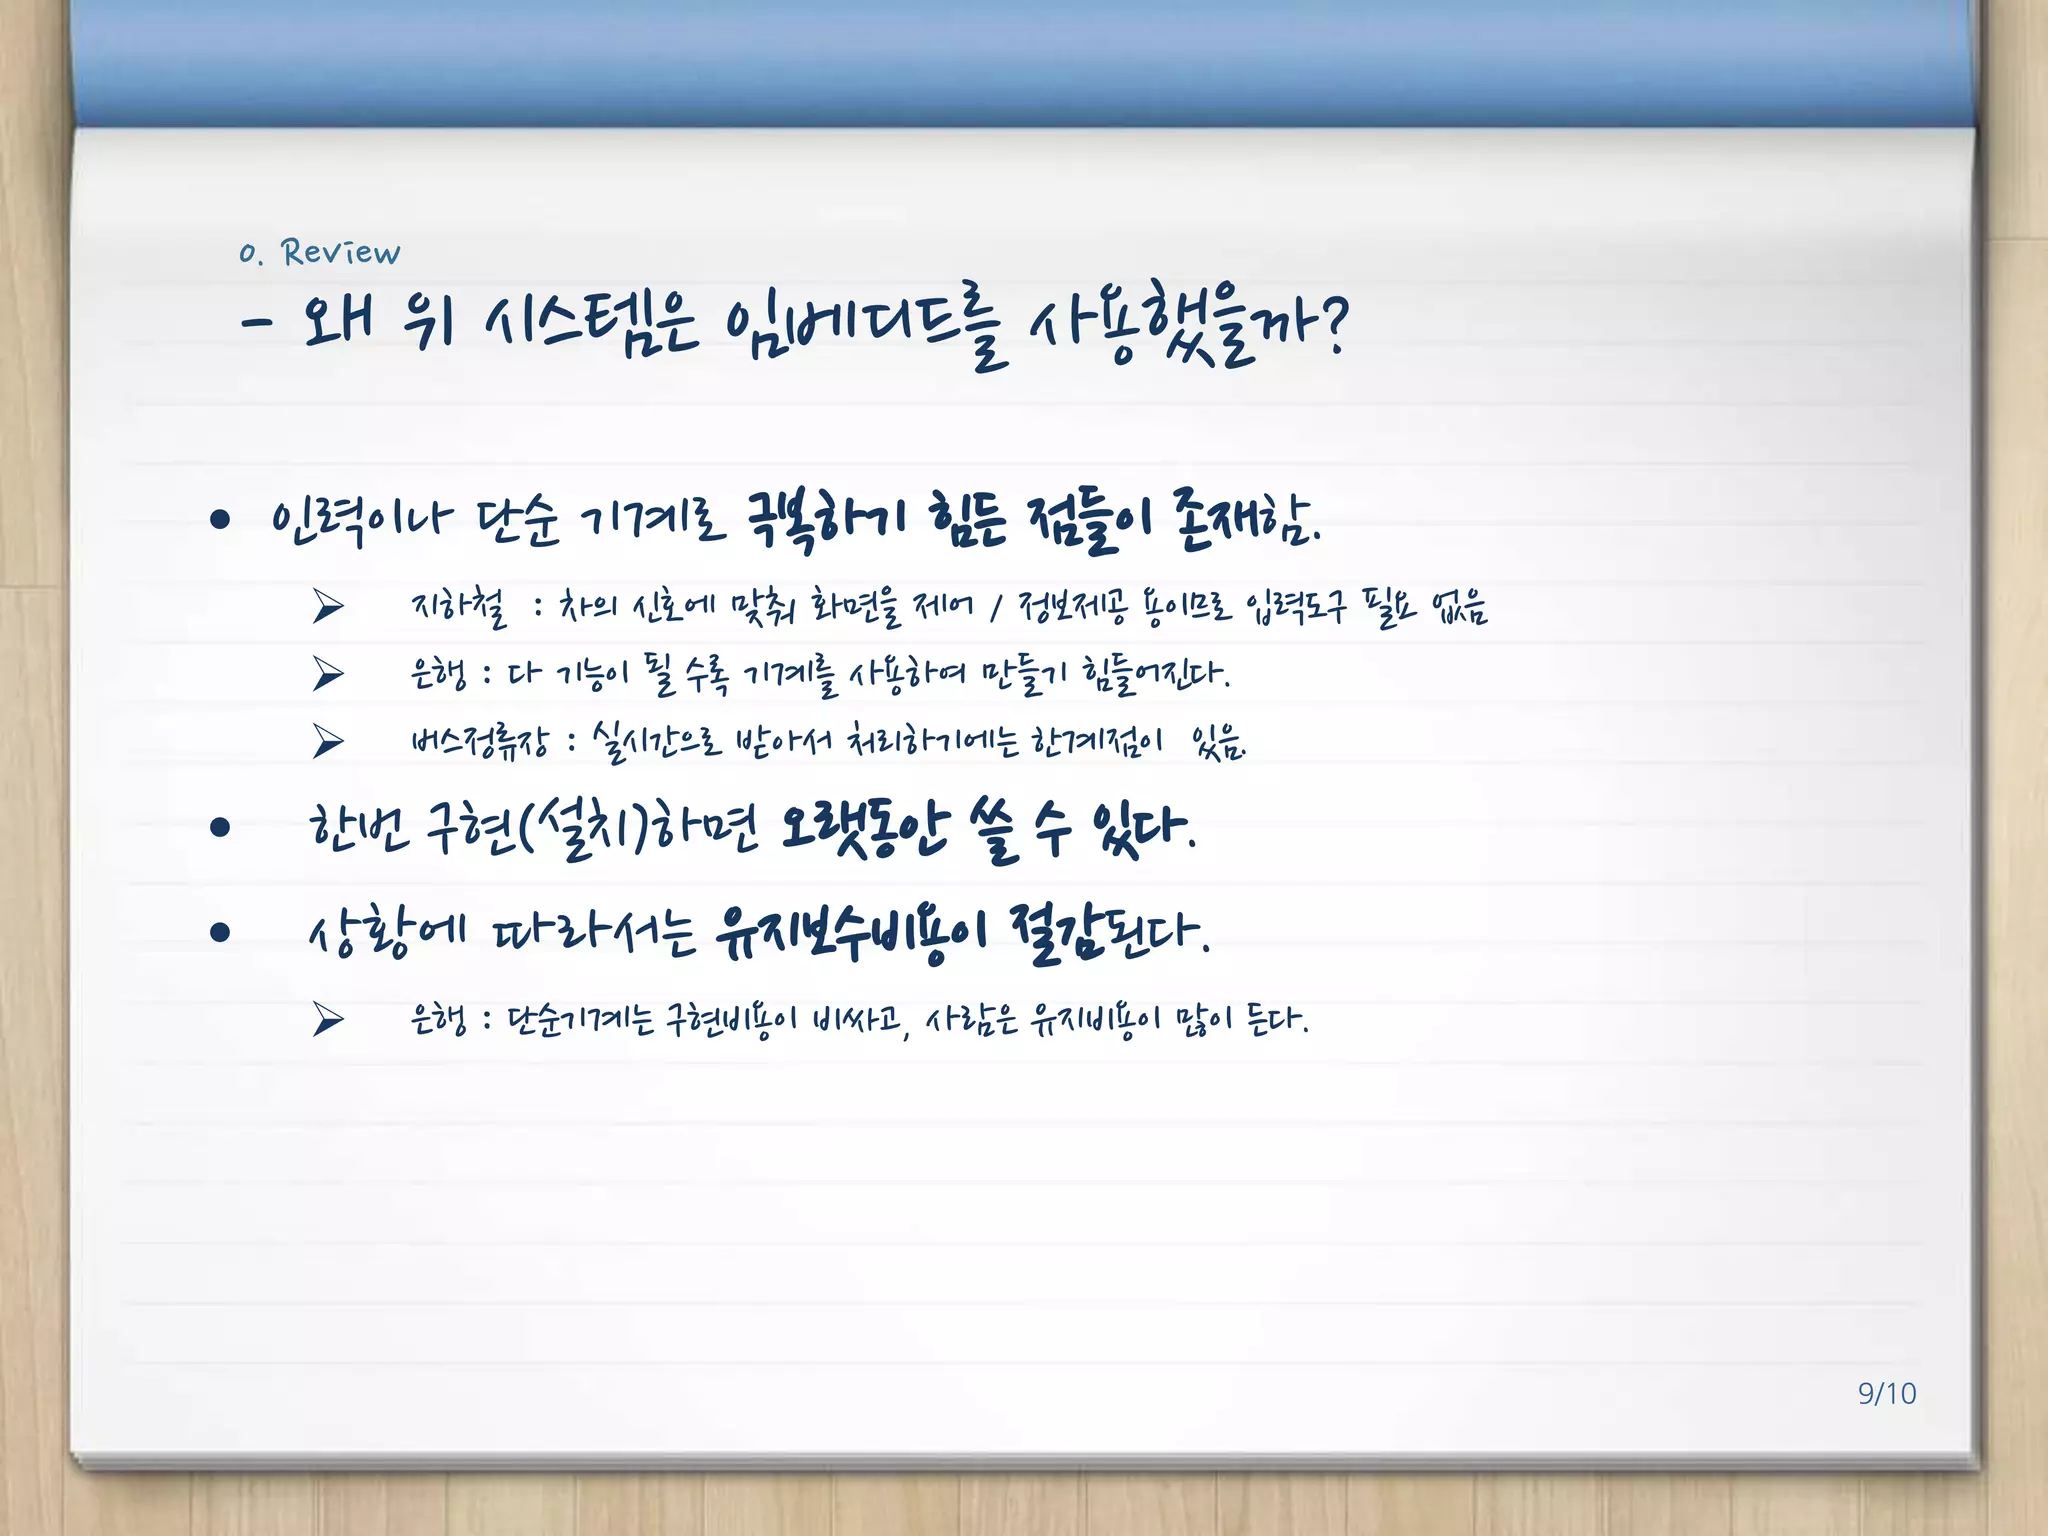 0. Review
- 왜 위 시스템은 임베디드를 사용했을까?
• 인력이나 단순 기계로 극복하기 힘든 점들이 존재함.
➢ 지하철 : 차의 신호에 맞춰 화면을 제어 / 정보제공 용이므로 입력도구 필요 없음
➢ 은행 : 다 기능이 될 수록 기계를 사용하여 만들기 힘들어진다.
➢ 버스정류장 : 실시간으로 받아서 처리하기에는 한계점이 있음.
• 한번 구현(설치)하면 오랫동안 쓸 수 있다.
• 상황에 따라서는 유지보수비용이 절감된다.
➢ 은행 : 단순기계는 구현비용이 비싸고, 사람은 유지비용이 많이 든다.
9/10